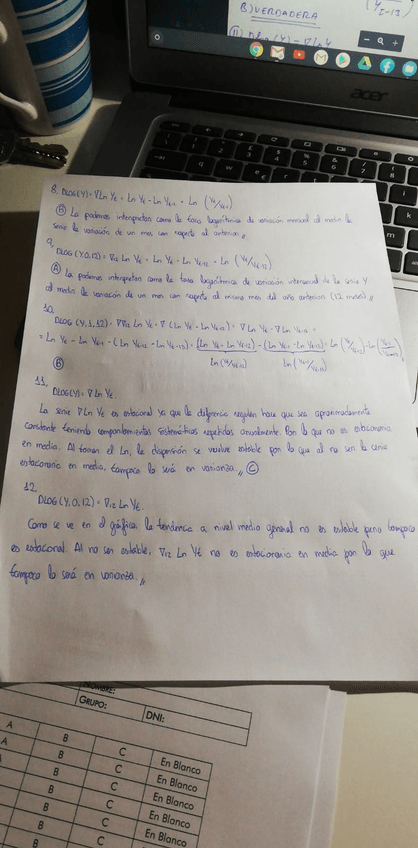 B) VERDADERA
acer
8. DLOG(Y) = ∇Ln Yt = Ln Yt - Ln Yt-1 = Ln (Yt/Yt-1)
Ⓑ La podemos interpretar como la tasa logarítmica de variación mensual al medir la
serie la variación de un mes con respecto al anterior //
9.
DLOG(Y,0,12) = ∇12 Ln Yt = Ln Yt - Ln Yt-12 = Ln (Yt/Yt-12)
Ⓐ La podemos interpretar como la tasa logarítmica de variación interanual de la serie Y
al medir la variación de un mes con respecto al mismo mes del año anterior (12 meses) //
10.
DLOG(Y,1,12) = ∇∇12 Ln Yt = ∇ (Ln Yt - Ln Yt-12) = ∇ Ln Yt - ∇ Ln Yt-12 =
= Ln Yt - Ln Yt-1 - (Ln Yt-12 - Ln Yt-13) = (Ln Yt - Ln Yt-12) - (Ln Yt-1 - Ln Yt-13) =
Ln (Yt/Yt-12) Ln (Yt-1/Yt-13)
Ⓑ
11.
DLOG(Y) = ∇ Ln Yt
La serie ∇ Ln Yt es estacional ya que la diferencia regular hace que sea aproximadamente
constante teniendo comportamientos sistemáticos repetidos anualmente. Por lo que no es estacionaria
en media. Al tomar el Ln, la dispersión se vuelve estable por lo que al no ser la serie
estacionaria en media, tampoco lo será en varianza. // Ⓒ
12.
DLOG(Y,0,12) = ∇12 Ln Yt.
Como se ve en el gráfico, la tendencia a nivel medio general no es estable pero tampoco
es estacional. Al no ser estable, ∇12 Ln Yt no es estacionaria en media por lo que
tampoco lo será en varianza. //
NOMBRE:
GRUPO: DNI:
A B C En Blanco
A B C En Blanco
B C En Blanco
B C En Blanco
B C En Blanco
B C